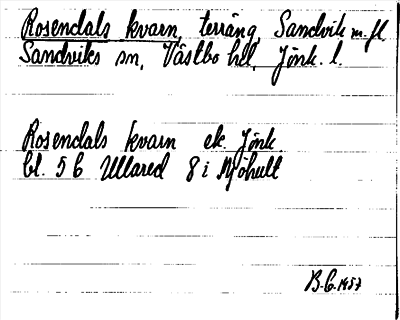 Rosendals kvarn, terräng, Sandvik m. fl.
Sandviks sn, Västbo hd, Jönk. l.
Rosendals kvarn ek Jönk
bl. 5 b Ullared 8 i Mjöhult
B.G. 1957